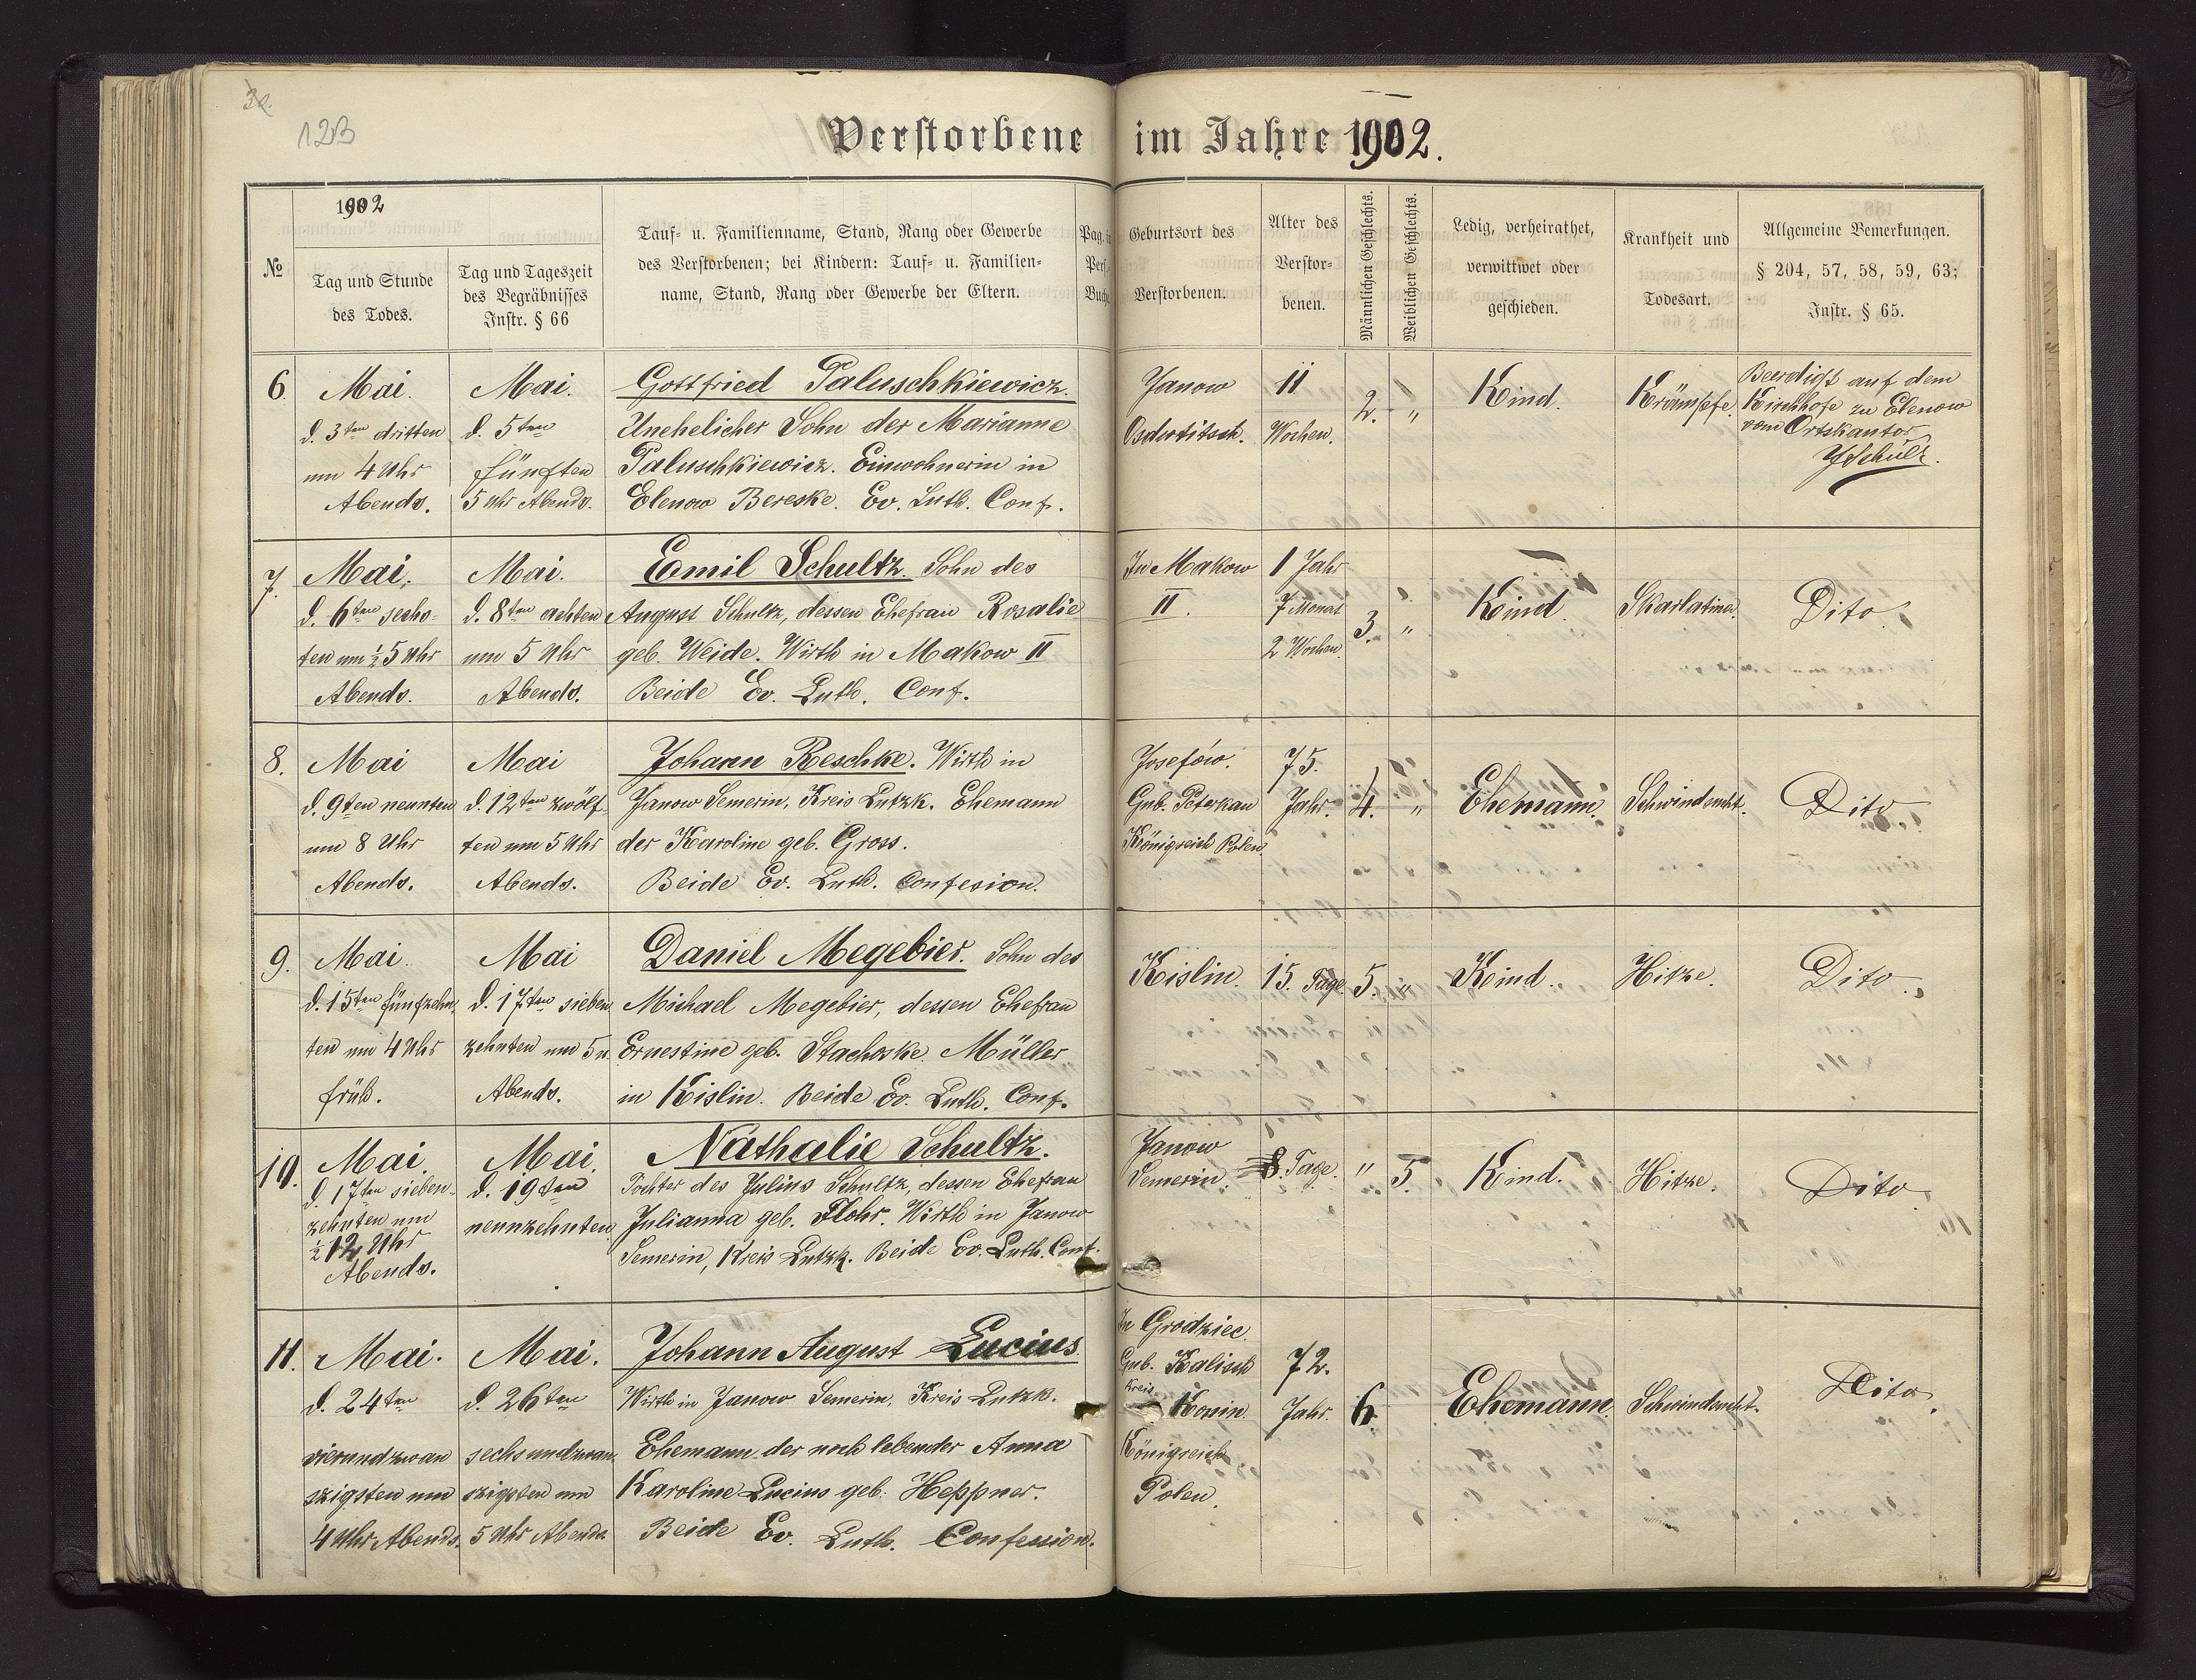 123
Verstorbene im Jahre 1902.
№
1902
Tag und Stunde
des Todes.
Tag und Tageszeit
des Begräbnisses
Instr. § 66
Tauf- u. Familienname, Stand, Rang oder Gewerbe
des Verstorbenen; bei Kindern: Tauf- u. Familien-
name, Stand, Rang oder Gewerbe der Eltern.
Pag. i
Pers
Buche
Geburtsort des
Verstorbenen.
Alter des
Verstor-
benen.
Männlichen Geschlechts.
Weiblichen Geschlechts.
Ledig, verheirathet,
verwittwet oder
geschieden.
Krankheit und
Todesart.
Allgemeine Bemerkungen.
§ 204, 57, 58, 59, 63;
Instr. § 65.
6.
Mai.
d. 3ten dritten
um 4 Uhr
Abends.
Mai.
d. 5ten
fünften
5 Uhr Abends.
Gottfried Paluschkiewicz.
Unehelicher Sohn der Marianne
Paluschkiewicz. Einwohnerin in
Elenow Bereske. Ev. Luth. Conf.
Janow
11
Wochen.
2.
"
Kind.
Krämpfe.
Beerdigt auf dem
Kirchhofe zu Elenow
vom Ortskantor
7.
Mai.
d. 6ten sechs-
ten um ½5 Uhr
Abends.
Mai.
d. 8ten achten
um 5 Uhr
Abends.
Emil Schultz. Sohn des
August Schultz, dessen Ehefrau Rosalie
geb. Weide. Wirth in Makow II
Beide Ev. Luth. Conf.
In Makow
II.
1 Jahr
7 Monat
2 Wochen
3.
"
Kind.
Skarlatina.
Dito.
8.
Mai
d. 9ten neunten
um 8 Uhr
Abends.
Mai
d. 12ten zwölf-
ten um 5 Uhr
Abends.
Johann Reschke. Wirth in
Janow Semerin, Kreis Lutzk. Ehemann
der Karoline geb. Gross.
Beide Ev. Luth. Confesion.
Josefów.
Gub. Peterkau
Königreich Polen.
75.
Jahr.
4.
"
Ehemann.
Schwindsucht.
Dito
9.
Mai.
d. 15ten fünfzehn
ten um 4 Uhr
früh.
Mai
d. 17ten sieben
zehnten um 5 u.
Abends.
Daniel Megebier. Sohn des
Michael Megebier, dessen Ehefrau
Ernestine geb. Stachoske. Müller
in Kislin. Beide Ev. Luth. Conf.
Kislin.
15. Tage
5.
"
Kind.
Hitze.
Dito.
10.
Mai.
d. 17ten sieben-
zehnten um
½12 Uhr
Abends.
Mai.
d. 19ten
neunzehnten.
Nathalie Schultz.
Tochter des Julius Schultz, dessen Ehefrau
Julianna geb. Flohr. Wirth in Janow
Semerin, Kreis Lutzk. Beide Ev. Luth. Conf.
Janow
Semerin.
8. Tage.
"
5.
Kind.
Hitze.
Dito
11.
Mai.
d. 24ten
vierundzwan
zigsten um
4 Uhr Abends.
Mai.
d. 26ten
sechsundzwan
zigsten um
5 Uhr Abends.
Johann August Lucius
Wirth in Janow Semerin, Kreis Lutzk.
Ehemann der noch lebender Anna
Karoline Lucius geb. Heppner.
Beide Ev. Luth. Confession.
In Grodziec.
Gub. Kalisch
Kreis
Konin.
Königreich
Polen.
72.
Jahr.
6.
Ehemann.
Schwindsucht.
Dito.